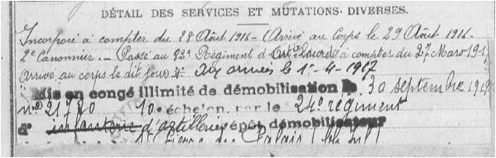 DÉTAIL DES SERVICES ET MUTATIONS DIVERSES.
Incorporé à compter du 28 Août 1916 - Arrivé au Corps le 29 Août 1916 -
2e Canonnier. - Passé au 92e Régiment d'Art Lourde à compter du 27 Mars 191
Arrivé au corps le dit jour Aux armées le 1-4-1917
Mis en congé illimité de démobilisation le 30 septembre 1919
no 21720 10e échelon, par le 24e régiment
d' infanterie d'artillerie dépôt démobilisateur
Palais